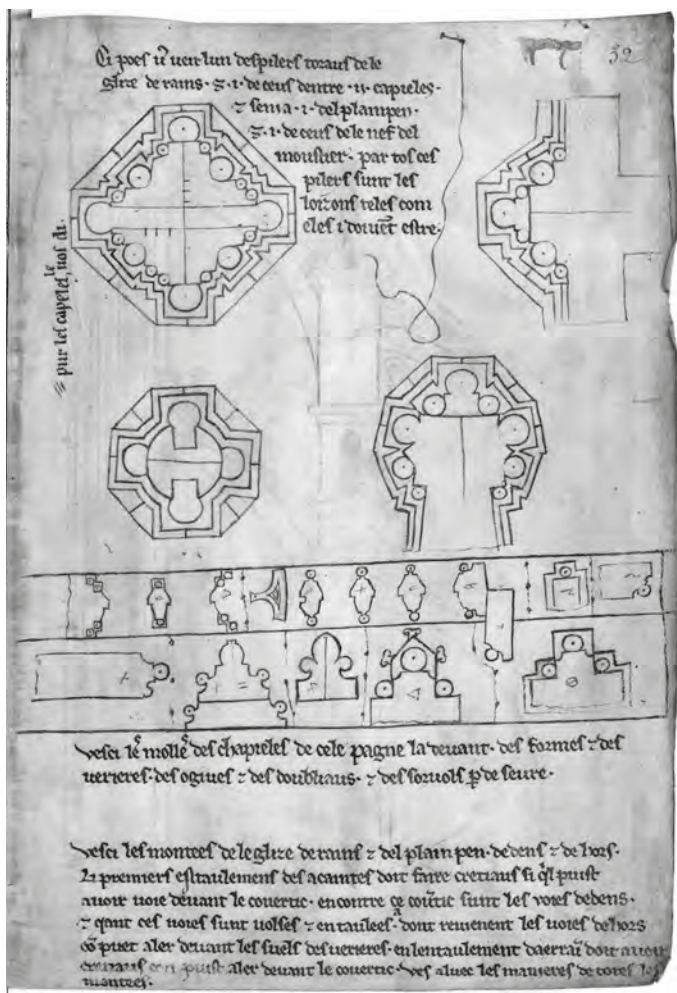 Ci poes vͦ veir lun des pilers toraus de le
glize de rains · ⁊ · i · de ceus dentre · ii · capieles ·
⁊ sen i a · i · del plain pen ·
⁊ · i · de ceus de le nef del
moustier · par tos ces
pilers sunt les
loizons teles com
eles i doivēt estre ·
32
pur les capeles,
vesci le mollē des chapieles de cele pagne la devant · des formes ⁊ des
verieres · des ogives ⁊ des doubliaus · ⁊ des sorvols p̄ de seure ·
vesci les montees de le glize de rains ⁊ del plain pen · dedens ⁊ dehors ·
li premiers estaulemens des acaintes doit faire cretiaus si ql puist
avoir voie devant le covertic · encontre ce covtic sunt les voies dedens ·
⁊ qant ces voies sunt volses ⁊ entaulees · dont revienent les voies dehors
cō puet aler devant les suels des verieres · en lentaulement daerraī doit avoir
puist aler devant le covertic · ves aluec les manieres de totes les
montees ·